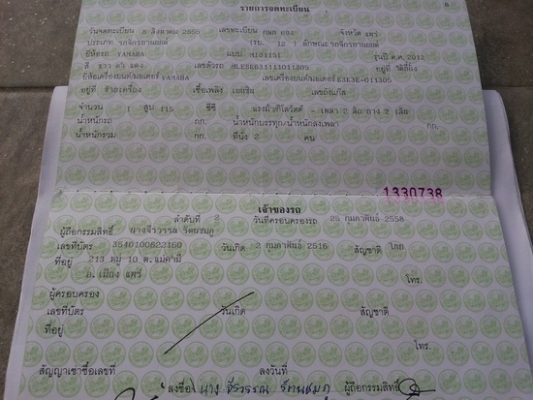 รายการจดทะเบียน
วันจดทะเบียน 8 สิงหาคม 2555 เลขทะเบียน จังหวัด แพร่
ประเภท รถจักรยานยนต์ ลักษณะ รถจักรยานยนต์
ยี่ห้อรถ YAMAHA แบบ รุ่นปี ค.ศ. 2012
สี ขาว ดำ แดง เลขตัวรถ อยู่ที่
ยี่ห้อเครื่องยนต์/มอเตอร์ YAMAHA เลขเครื่องยนต์/มอเตอร์
อยู่ที่ ข้างเครื่อง เชื้อเพลิง เบนซิน เลขถังแก๊ส
จำนวน 1 สูบ 115 ซีซี 2 ล้อ ยาง 2 เส้น
น้ำหนักรถ กก. น้ำหนักบรรทุก/น้ำหนักลงเพลา กก.
น้ำหนักรวม กก. ที่นั่ง 2 คน
1330738
เจ้าของรถ
ลำดับที่ 2 วันที่ครอบครองรถ 25 กุมภาพันธ์ 2558
ผู้ถือกรรมสิทธิ์
เลขที่บัตร 3540100622160 วันเกิด 2 กุมภาพันธ์ 2515 สัญชาติ ไทย
ที่อยู่ 213 หมู่ 10 ต.แม่คำมี โทร.
อ.เมือง แพร่
ผู้ครอบครอง
เลขที่บัตร วันเกิด สัญชาติ
ที่อยู่
โทร.
สัญญาเช่าซื้อเลขที่ ลงวันที่
(ลงชื่อ) นาง ผู้ถือกรรมสิทธิ์